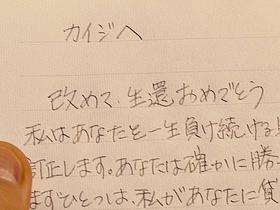 カイジへ
改めて、生還おめでとう
私はあなたを一生負け続ける
訂正します。あなたは確かに勝
まずひとつは、私があなたに貸